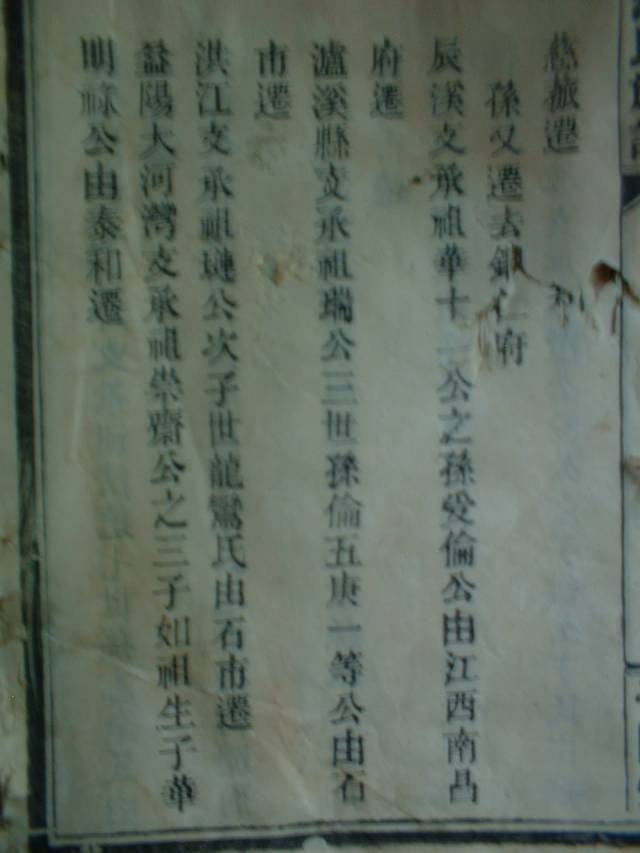 遷
孫又遷去銅仁府
辰溪支承祖華十二公之孫受倫公由江西南昌
府遷
瀘溪縣支承祖瑞公三世孫倫五庚一等公由石
市遷
洪江支承祖公次子世龍鸞氏由石市遷
益陽大河灣支承祖崇齋公之三子如祖生子華
明祿公由泰和遷